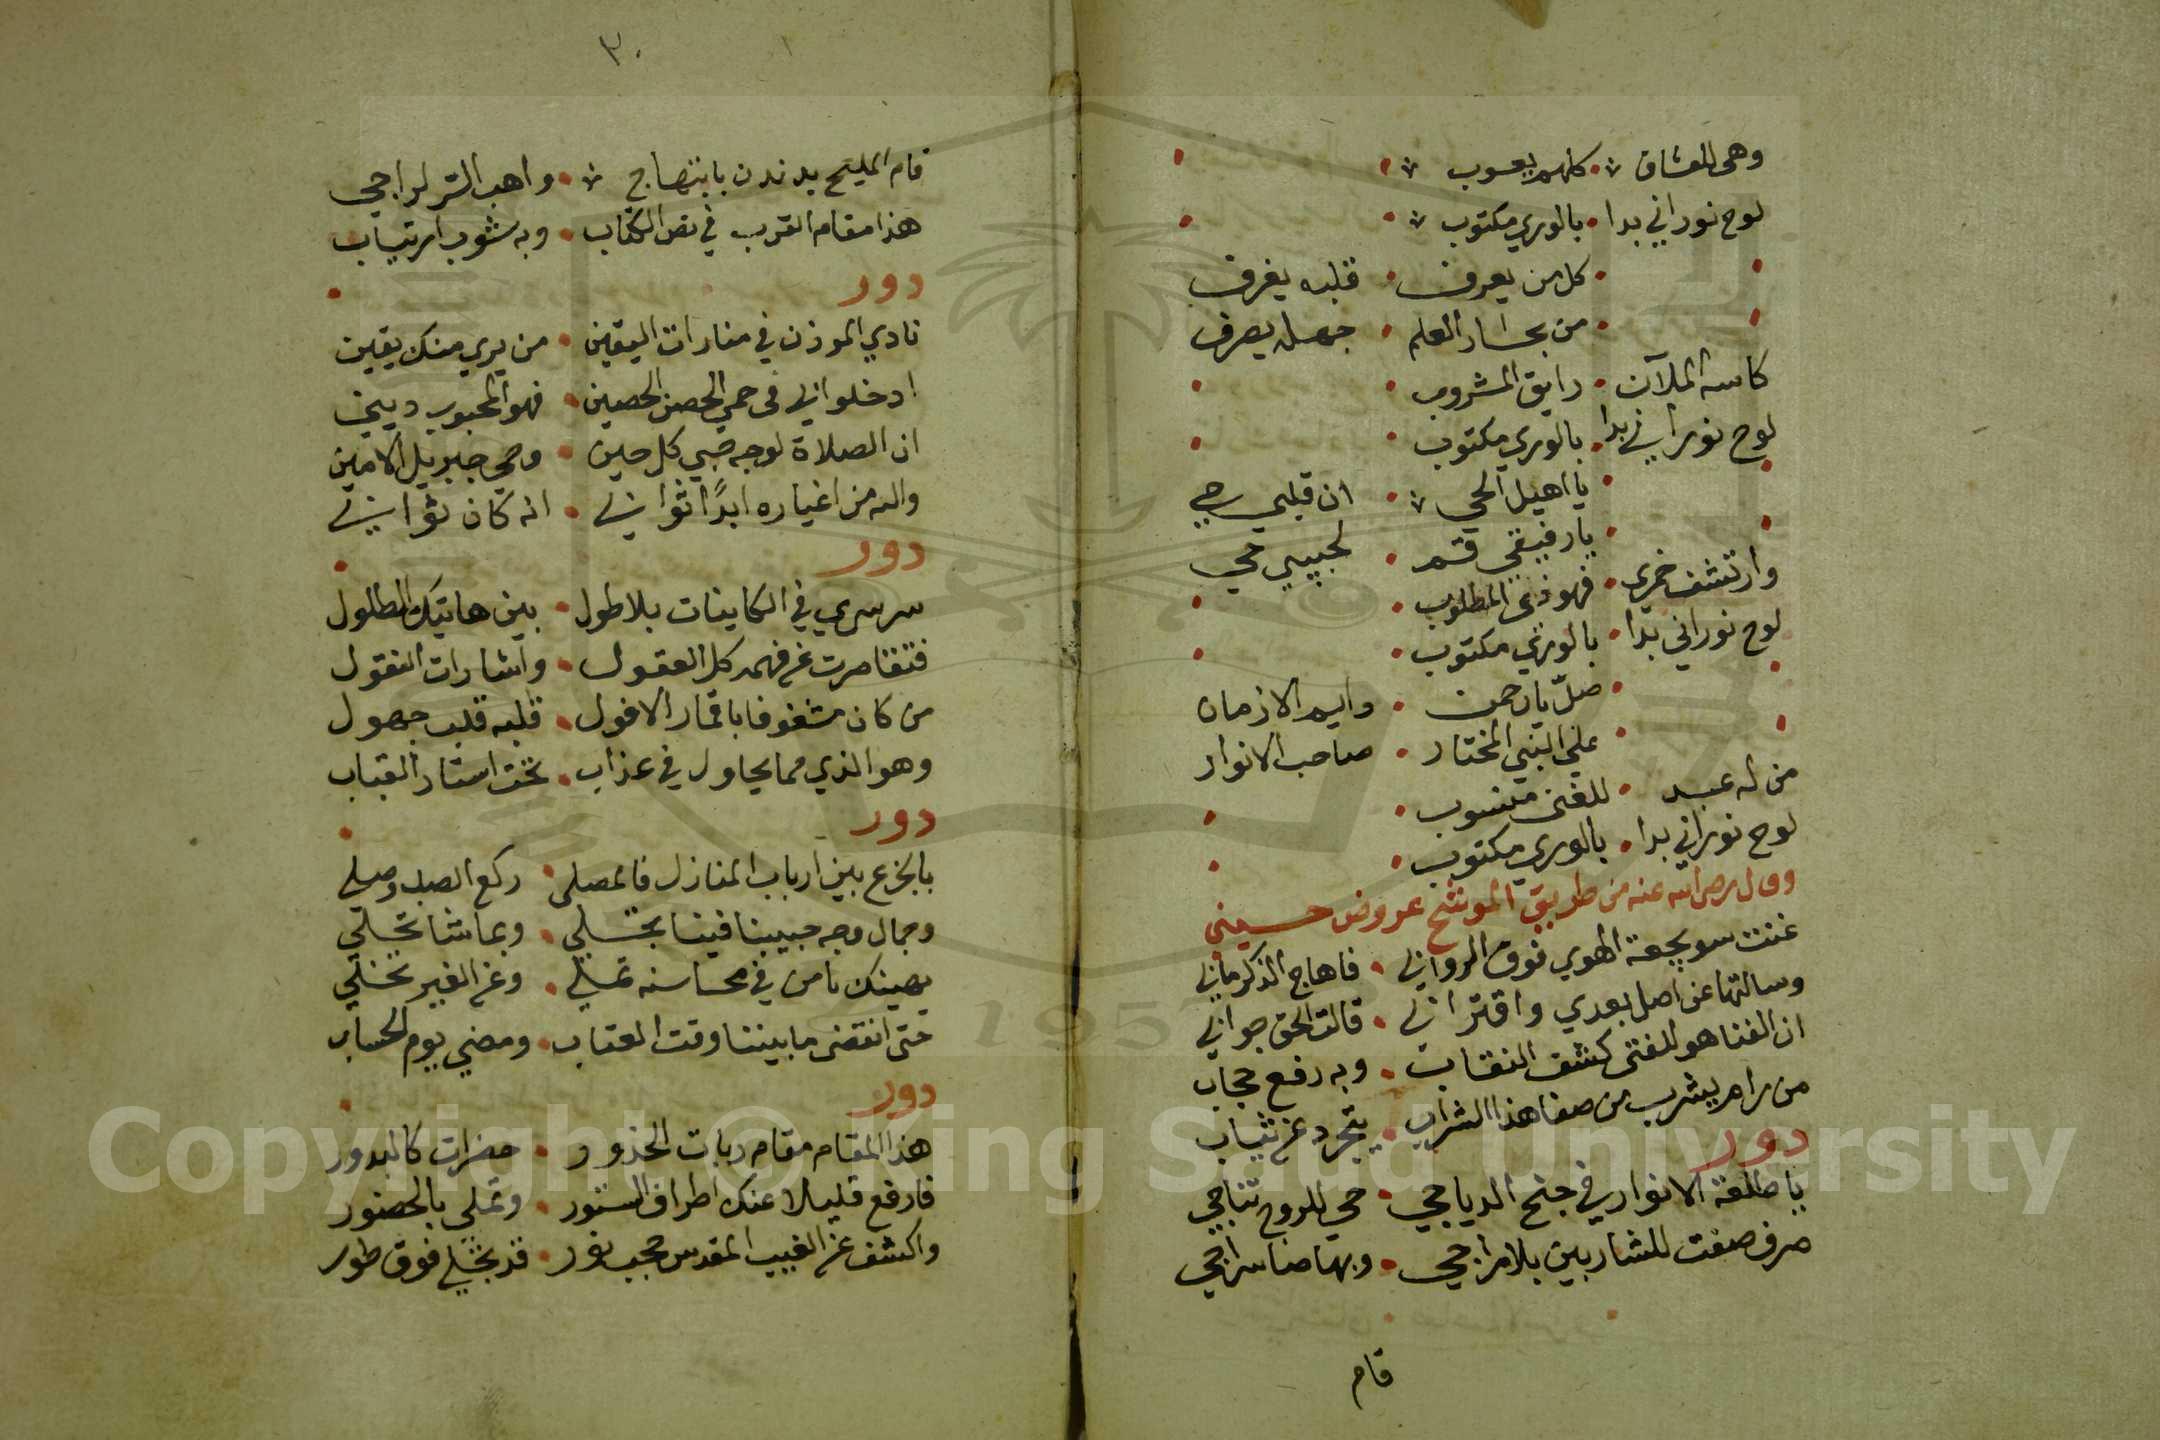 وهى للعشاق كلهم يعسوب
لوح نوراني بدا بالوري مكتوب
كل من يعرف قلبه يغرف
من بحار العلم جهله يصرف
كاسه الملآن رايق المشروب
لوح نوراني بدا بالوري مكتوب
يا اهيل الحي ان قلبي حي
يا رفيقي قم لحبيبي حي
وارتشف خمري فهو ذى المطلوب
لوح نوراني بدا بالوري مكتوب
صلّ يا رحمن دايم الازمان
علي النبي المختار صاحب الانوار
من له عبد للغنى منسوب
لوح نوراني بدا بالوري مكتوب
وقال رضي الله عنه من طريق الموشح عروض حسيني
غنت سويجعة الهوي فوق الروابي فاهاج الذكر مابي
وسالتها عن اصل بعدي واقترابي قالت الحق جوابي
ان الفنا هو للفتى كشف النقاب وبه رفع حجاب
من رام يشرب من صفا هذا الشراب يتجرد عن ثياب
دور
يا طلعة الانوار في جنح الدياجي حي للروح تناجي
صرف صفت للشاربين بلا مزاجي وبها ضا سراجي
قام
٣٠
قام المليح يدندن بابتهاج واهب السر لراجي
هذا مقام القرب في نص الكتاب وبه شوب ارتياب
دور
نادي الموذن في منارات اليقين من يري منك يقين
ادخلوا الي في حمي الحصن الحصين فهو المحبوب ديني
ان الصلاة لوجه حبي كل حين وحي جبريل الامين
والله من اغياره ابدًا ثوابي انه كان ثوابي
دور
سر سري في الكاينات بلا طول بين هاتيك الطلول
فتقاصرت عن فهمه كل العقول واشارات النقول
من كان مشغوفا باقمار الافول قلبه قلب جهول
وهو الذي مما يحاول في عذاب تحت استار القباب
دور
بالجزع بين ارباب المنازل فالمصلى ركع الصب وصلي
وجمال وجه حبيبنا فينا تجلي وبما شا تحلي
يهنيك يا من في محاسنه تملي وعن الغير تخلي
حتى انقضى ما بيننا وقت العتاب ومضي يوم الحساب
دور
هذا المقام مقام ربات الخدور حضرات كالبدور
فارفع قليلا عنك اطراف الستور وتملي بالحضور
واكشف عن الغيب المقدس حجب نور قد تجلي فوق طور
1957
Copyright © King Saud University